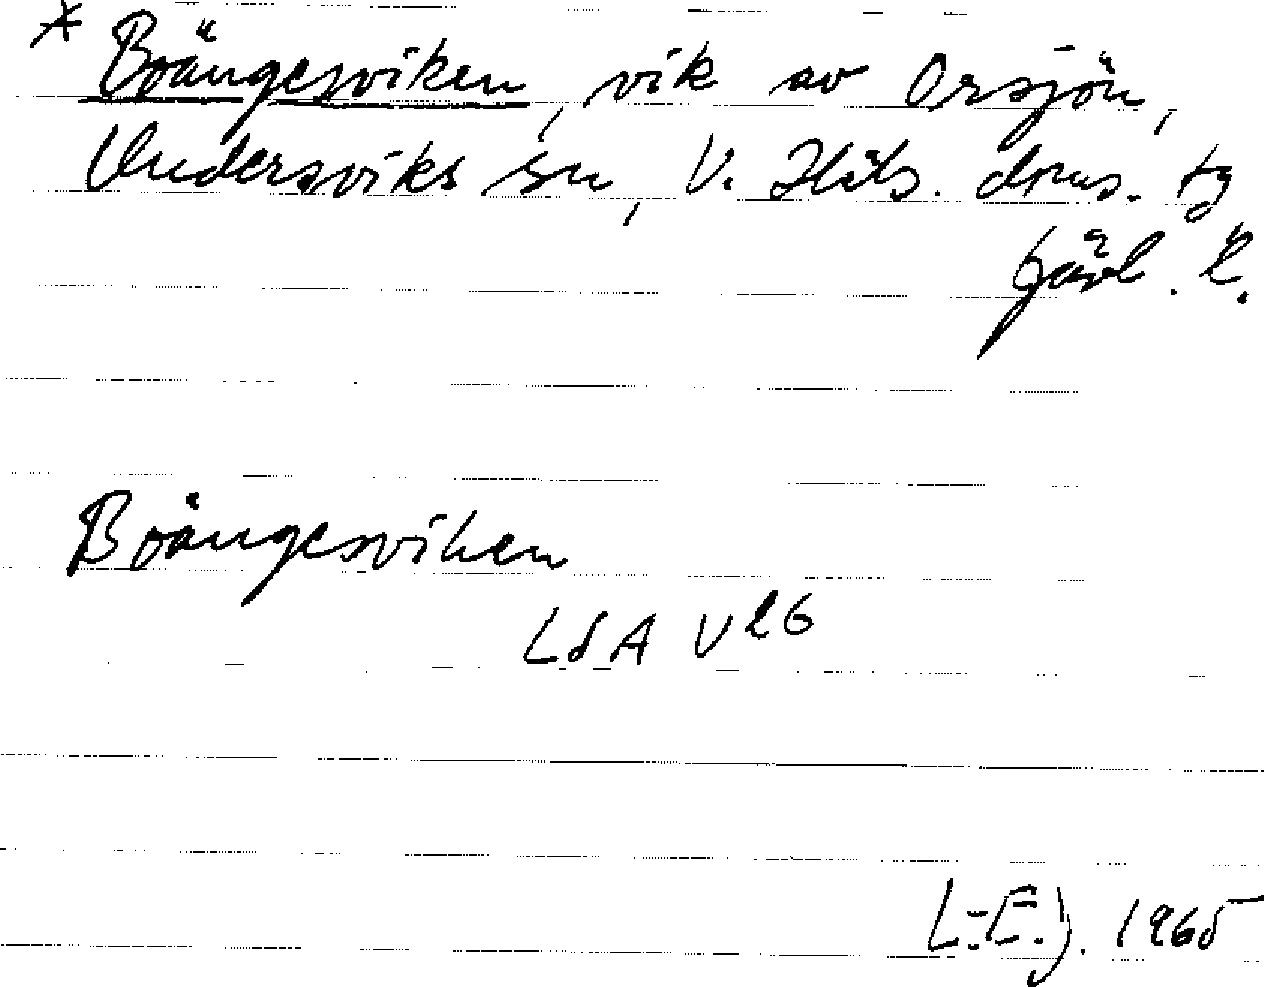 * Boängesviken, vik av Orsjön,
Undersviks sn, V. Häls. doms. tg
Gävl. l.
Boängesviken
LSA V 26
L.-E. J. 1965